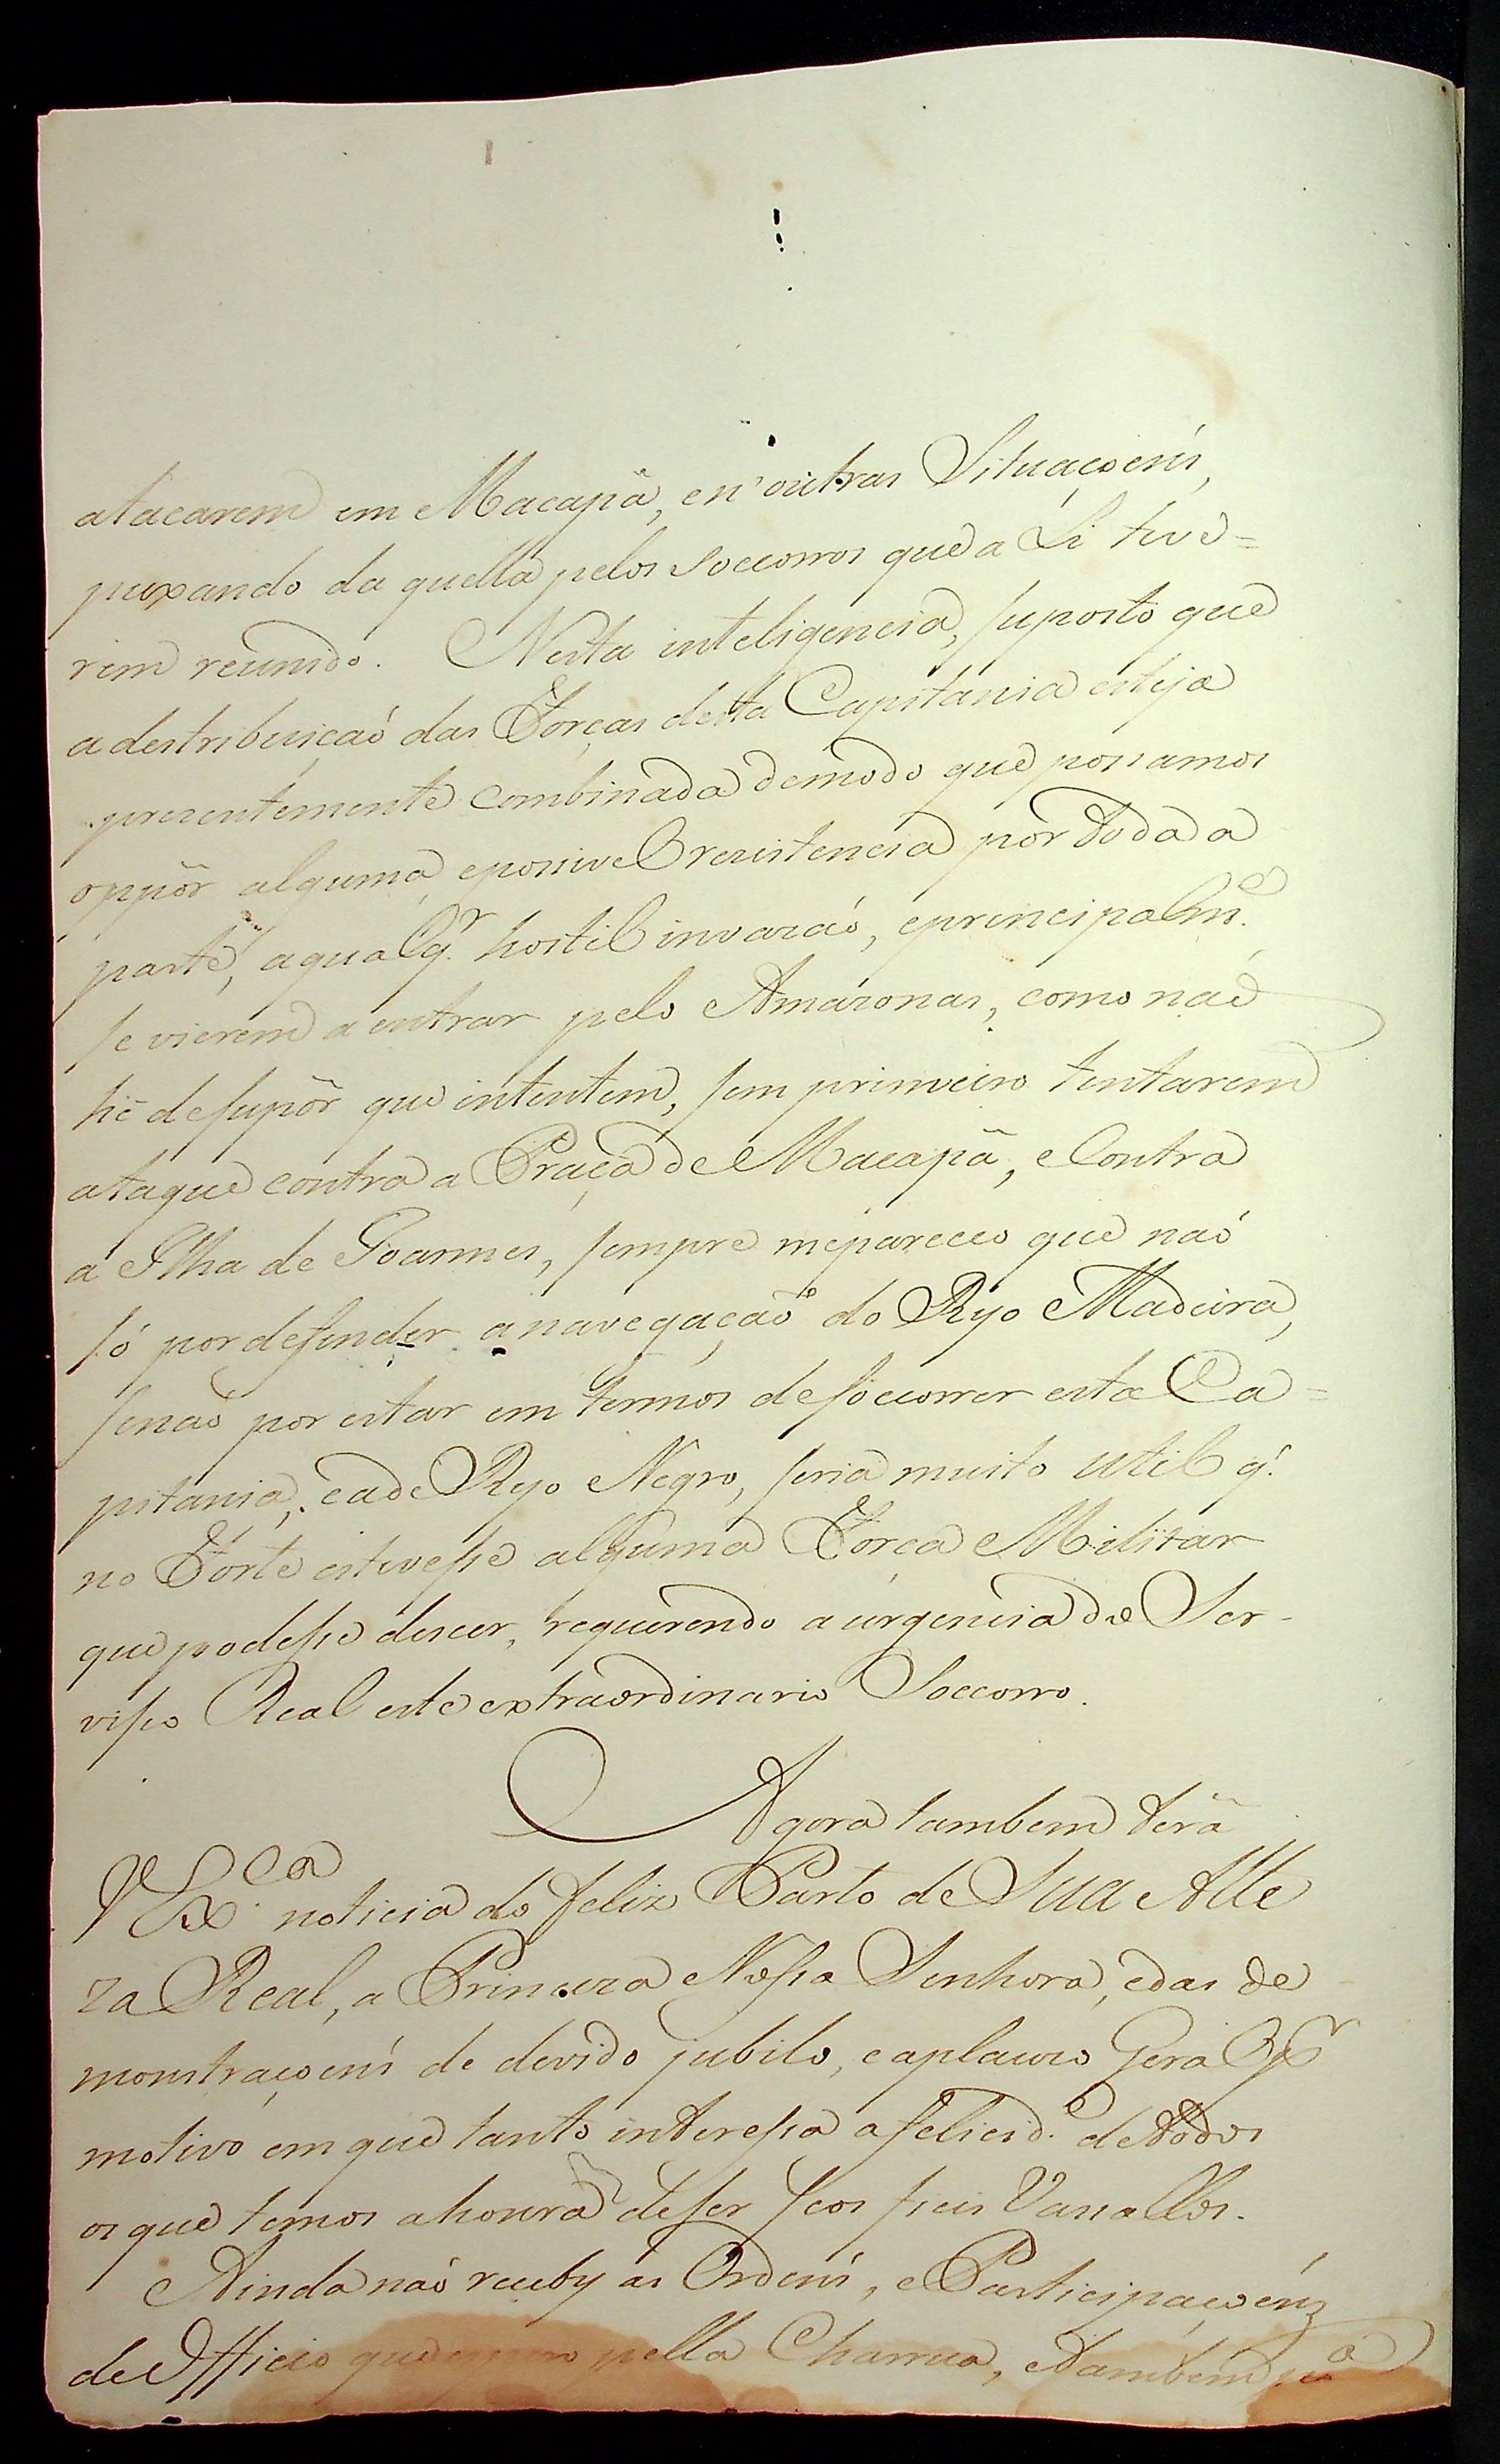 atacarem em Macapã, en'outras Situaçoens,
puxando da quella pelos Soccorros que a Li tive=
rem reunido. Nesta inteligencia, suposto que
a destribuiçaõ das Forças desta Capitania esteja
prezentemente combinada de modo que possamos
oppôr alguma, e possivel rezistencia por toda a
parte, a qualqr. hostil invazaõ, e principalme.
se vierem a entrar pelo Amázonas, como naõ
hé de supôr que intentem, sem primeiro tentarem
ataque contra a Praça de Macapã, e Contra
a Ilha de Joannes, sempre me pareceo que naõ
só por defender a navegaçaõ do Ryo Madeira,
senaõ por estar em termos de soccorrer esta Ca=
pitania, e a de Ryo Negro, seria muito util q.
no Forte estivesse alguma Força Militar
que podesse descer, requerendo a urgencia do Ser-
visso Real este extraordinario Soccorro.
Agora tambem terã
V Exca. noticia do feliz Parto de Sua Alte
za Real, a Princeza Nossa Senhora, e das de
monstraçoens de devido jubilo, e aplauzo Geral pr
motivo em que tanto interessa a felicide. de todos
os que temos a honra de ser seos fieis Vassallos.
Ainda naõ receby as Ordens, e Participaçoens
de Officio que espero pella Charrua, e tambem pa